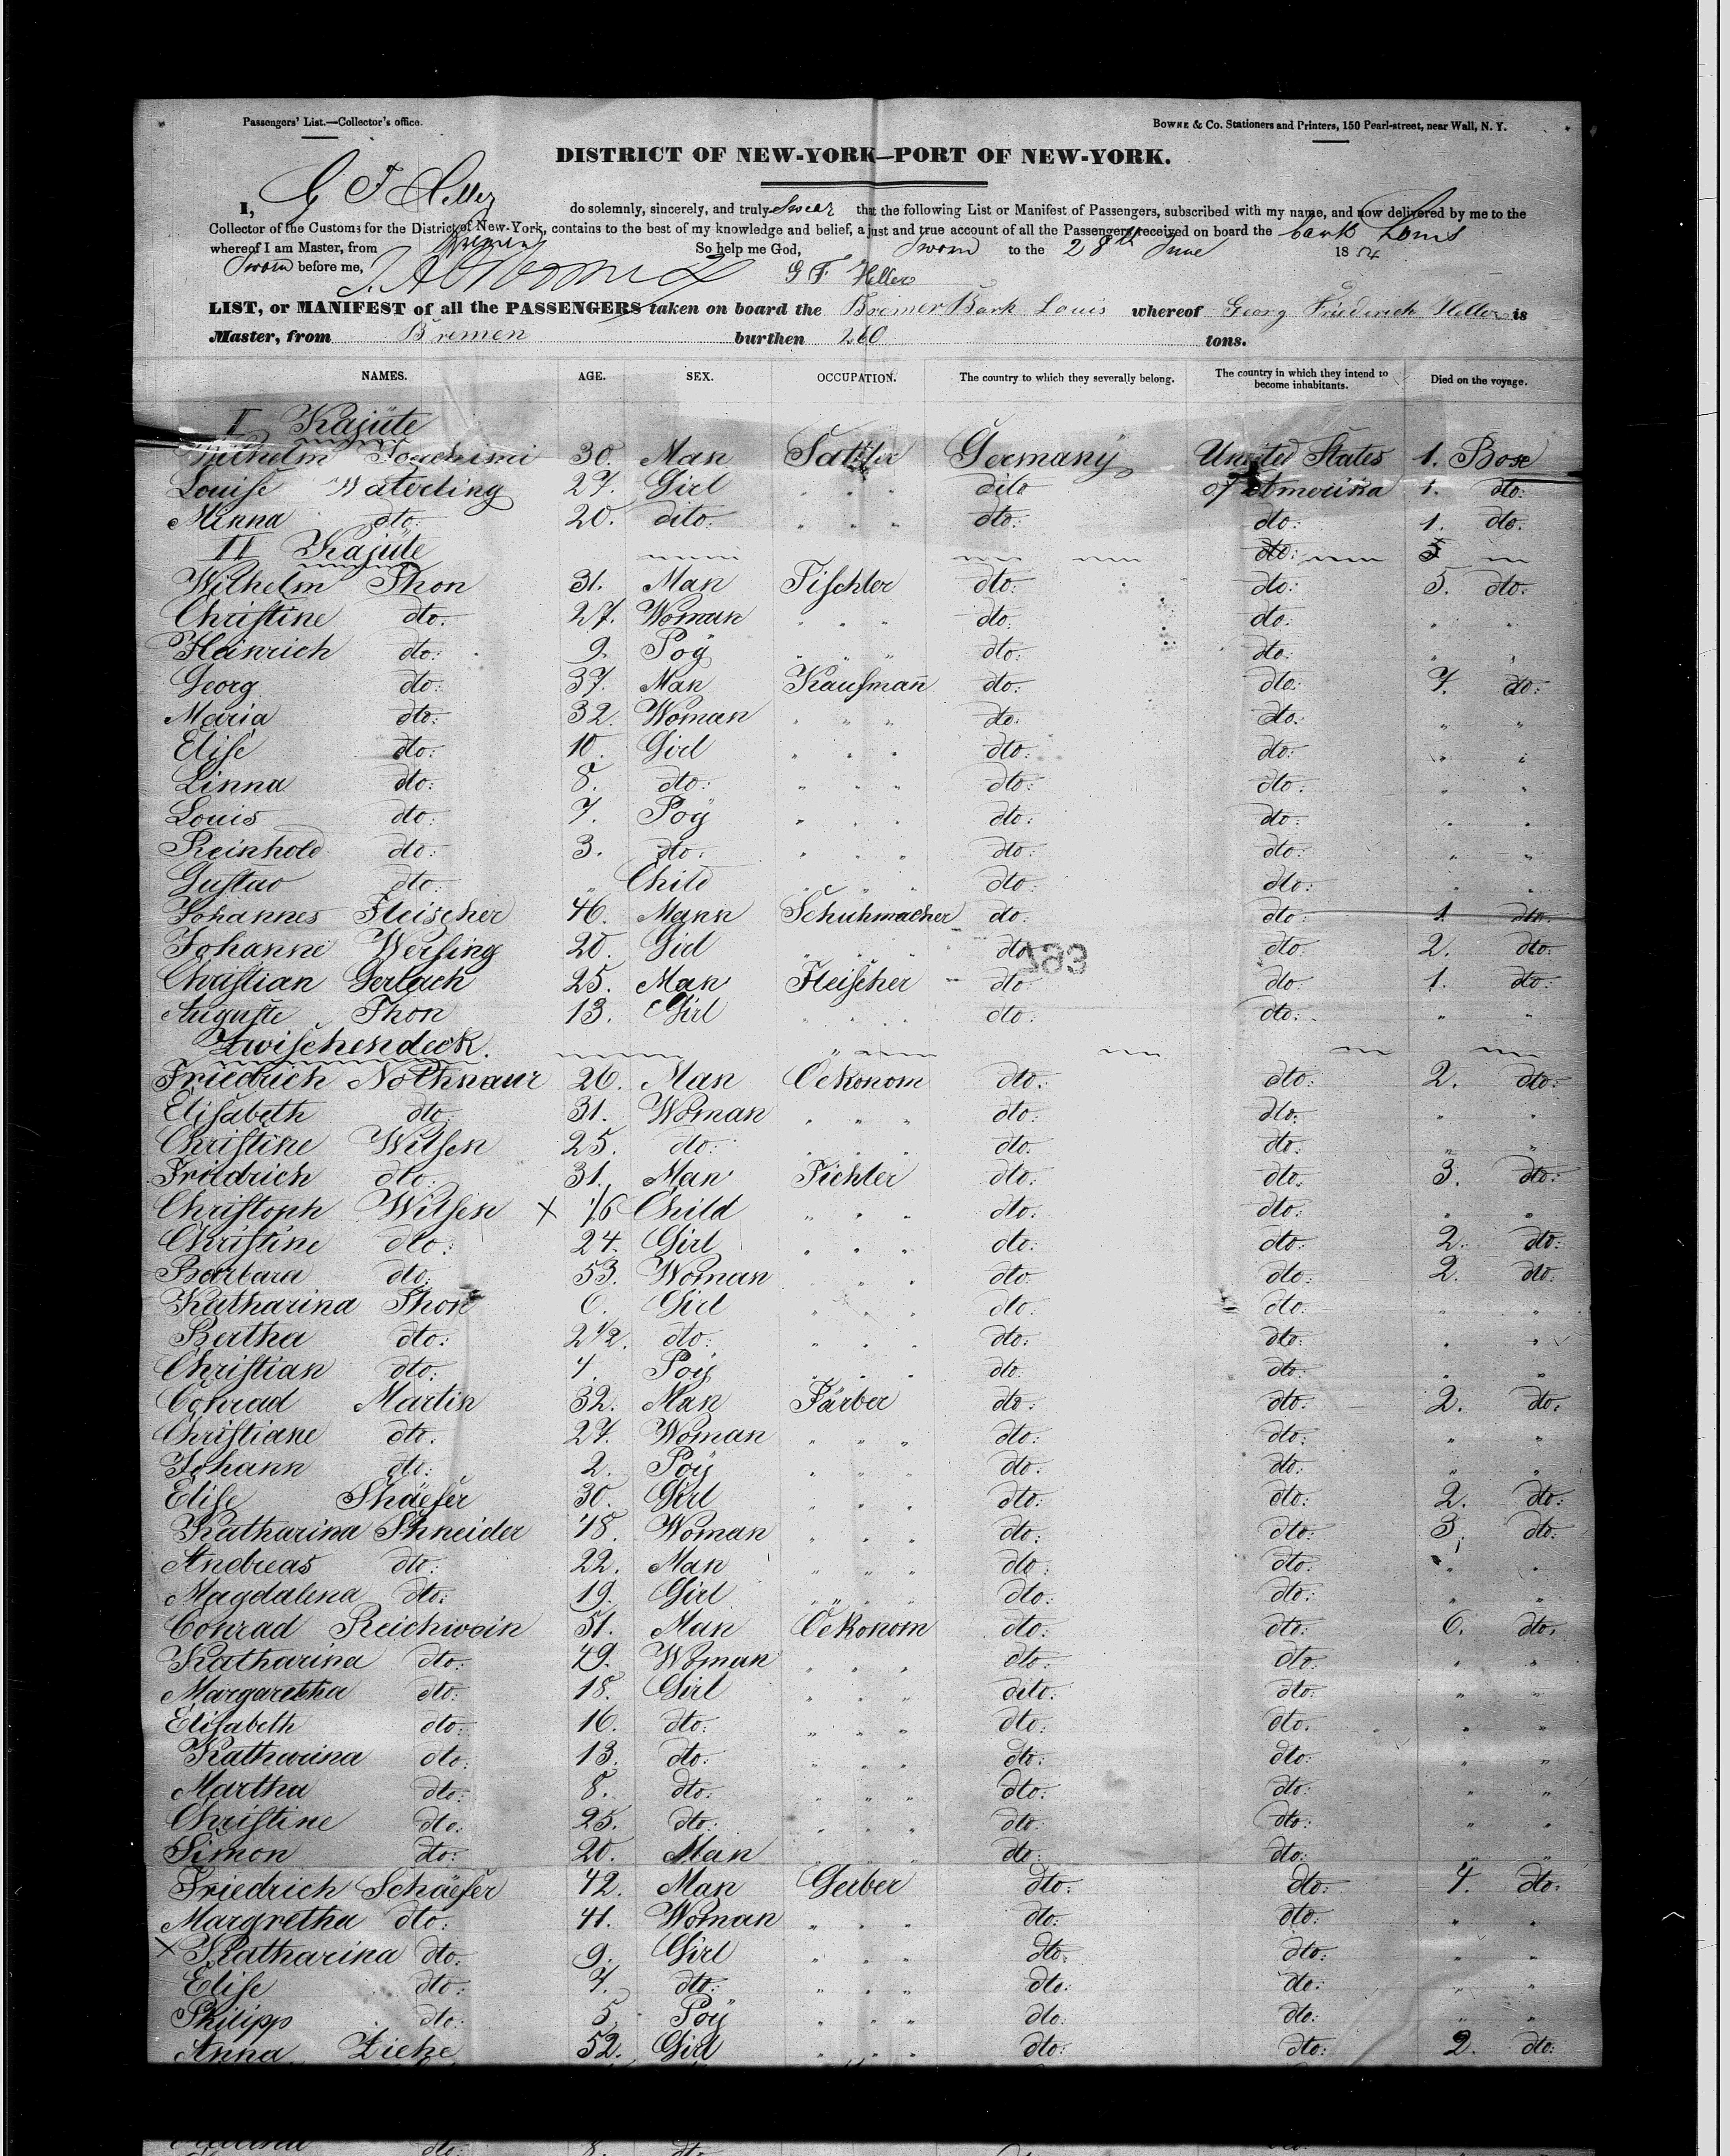 Passengers' List.—Collector's office.
BOWNE & Co. Stationers and Printers, 150 Pearl-street, near Wall, N. Y.
DISTRICT OF NEW-YORK—PORT OF NEW-YORK.
I, G F Heller do solemnly, sincerely, and truly Swear that the following List or Manifest of Passengers, subscribed with my name, and now delivered by me to the
Collector of the Customs for the District of New-York, contains to the best of my knowledge and belief, a just and true account of all the Passengers received on board the bark Louis
whereof I am Master, from Bremen So help me God, Sworn to the 28th June 1854
Sworn before me, G F Heller
LIST, or MANIFEST of all the PASSENGERS taken on board the Bremer Bark Louis whereof Georg Friederich Heller is
Master, from Bremen burthen 260 tons.
NAMES. AGE. SEX. OCCUPATION. The country to which they severally belong. The country in which they intend to become inhabitants. Died on the voyage.
I Kajüte
Wilhelm Joachimi 30. Man Sattler Germany United States 1. Box
Louise Waterling 27. Girl " " " dito of Amerika 1. dto:
Minna dto: 20. dito. " " " dto: dto: 1. dto.
II Kajüte dto: 5
Wilhelm Thon 31. Man Tischler dto: dto: 5. dto.
Christine dto. 27. Woman " " " dto. dto. " "
Heinrich dto: 9. Poÿ " " " dto: dto: " "
Georg dto: 37. Man Kaufmann dto: dto: 7. dto:
Maria dto: 32. Woman " " " dto: dto. " "
Elise dto: 10. Girl " " " dto: dto: " "
Linna dto: 8. dto: " " " dto: dto: " "
Louis dto: 7. Poÿ " " " dto: dto: " "
Reinhold dto: 3. dto. " " " dto: dto: " "
Gustav dto: " Child " " " dto: dto: " "
Johannes Fleischer 46. Mann Schuhmacher dto: dto: 1 dto.
Johanne Wersing 20. Girl " " " dto dto 2. dto:
793
Christian Gerlach 25. Man Fleischer dto. dto 1. dto:
Auguste Thon 13. Girl " " " dto. dto: " "
Zwischendeck.
Friedrich Nothnaur 26. Man Oekonom dto: dto: 2. dto:
Elisabeth dto: 31. Woman " " " dto: dto: " "
Christine Witsen 25. dto: " " " dto: dto: " "
Friedrich dto: 31. Man Tichler dto: dto. 3. dto:
Christoph Witsen X 1/6 Child " " " dto: dto: " "
Christine dto: 24. Girl " " " dto: dto: 2. dto:
Barbara dto: 53. Woman " " " dto: dto: 2. dto:
Katharina Thon 6. Girl " " " dto: dto: " "
Bertha dto: 2 1/2. dto: " " " dto: dto: " "
Christian dto: 4. Poÿ " " " dto: dto: " "
Conrad Martin 32. Man Färber dto: dto: 2. dto.
Christiane dto. 27. Woman " " " dto: dto: " "
Johann dto: 2. Poÿ " " " dto: dto: " "
Elise Shäefer 30. Girl " " " dto: dto: 2. dto:
Katharina Shneider 48. Woman " " " dto: dto: 3. dto:
Andreas dto: 22. Man " " " dto: dto: " "
Magdalena dto: 19. Girl " " " dto. dto: " "
Conrad Reichwein 51. Man Oekonom dto: dto: 6. dto.
Katharina dto: 49. Woman " " " dto: dto: " "
Margaretha dto: 18. Girl " " " dito: dto: " "
Elisabeth dto: 16. dto: " " " dto: dto. " "
Katharina dto: 13. dto: " " " dto: dto: " "
Martha dto: 8. dto: " " " dto: dto: " "
Christine dto: 25. dto: " " " dto: dto: " "
Simon dto: 20. Man dto: dto: " "
Friedrich Schäefer 42. Man Gerber dto: dto: 4. dto:
Margretha dto: 41. Woman " " " dto: dto: " "
X Katharina dto: 9. Girl " " " dto: dto: " "
Elise dto: 7. dto: " " " dto: dto: " "
Philipp dto: 5. Poÿ " " " dto: dto: " "
Anna Ziehe 52. Girl " " " dto: dto: 2. dto: